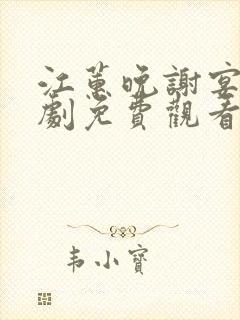 江蕙晚謝宴
劇免費觀看
韦小寶